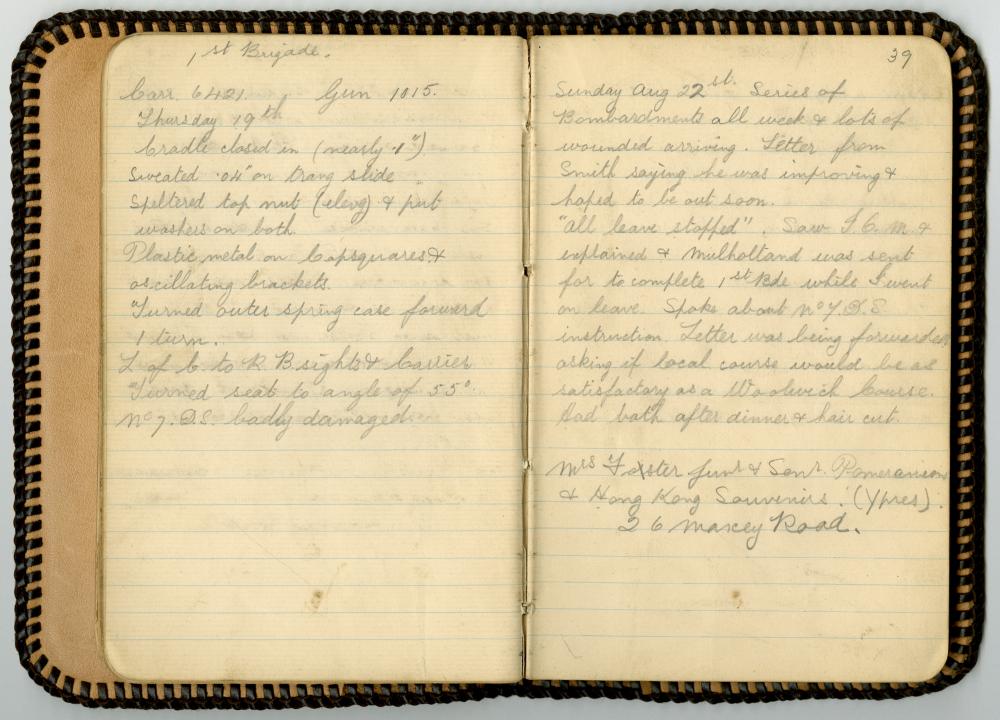 1st Brigade.
Carr. 6421. Gun 1015.
Thursday 19th
Cradle closed in (nearly .1")
Sweated .04" on trang slide
Speltered top nut (elevg) & put
washers on both.
Plastic metal on Capsquares &
oscillating brackets.
"Turned outer spring case forward
1 turn.
L of C. to R B. sights & Carrier
"Turned seat to angle of 55°.
No 7. D.S. badly damaged.
39
Sunday Aug 22st. Series of
Bombardments all week & lots of
wounded arriving. Letter from
Smith saying he was improving &
hoped to be out soon.
"All leave stopped". Saw I.O.M. &
explained & Mulholland was sent
for to complete 1st Bde while I went
on leave. Spoke about No 7. D.S
instruction. Letter was being forwarded
asking if local course would be as
satisfactory as a Woolwich Course.
Had bath after dinner & hair cut.
Mrs Foster Junr & Senr. Pomeranian
& Hong Kong Souvenirs. (Ypres).
26 Maxey Road.